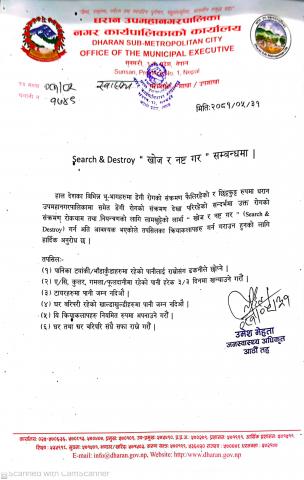 धरान उपमहानगरपालिका
नगर कार्यपालिकाको कार्यालय
DHARAN SUB-METROPOLITAN CITY
OFFICE OF THE MUNICIPAL EXECUTIVE
सुनसरी, १ प्रदेश, नेपाल
Sunsari, Province No. 1, Nepal
मितिः२०८१/०५/३१
Search & Destroy " खोज र नष्ट गर " सम्बन्धमा |
हाल देशका विभिन्न भू-भागहरुमा डेंगी रोगको संक्रमण फैलिरहेको र छिट्फुट रुपमा धरान
उपमहानगरपालिकामा समेत डेंगी रोगको संक्रमण देखा परिरहेको सन्दर्भमा उक्त रोगको
संक्रमण रोकथाम तथा नियन्त्रणको लागि लामखुट्टेको लार्भा - खोज र नष्ट गर " (Search &
Destroy) गर्न अति आवश्यक भएकोले तपसिलका क्रियाकलापहरु गर्न गराउन हुनको लागि
हार्दिक अनुरोध छ |
तपसिलः-
(१) पानीका ट्यांकी/भाँडाकुँडाहरुमा रहेको पानीलाई राम्रोसंग ढकनीले छोप्ने |
(२) ए/सि, कुलर, गमला/फूलदानीमा रहेको पानी हरेक ३/२ दिनमा खन्याउने गर्ने |
(३) टायरहरुमा पानी जम्न नदिऔं |
(४) घर वरिपरी रहेको खाल्डाखुल्डीहरुमा पानी जम्न नदिऔं |
(५) यि क्रियाकलापहरु नियमित रुपमा अपनाउने गरौं |
(६) घर तथा घर वरिपरि सधैं सफा राख्ने गरौं |
उमेश मेहता
जनस्वास्थ्य अधिकृत
आठौं तह
E-mail: info@dharan.gov.np, Website: http:/www.dharan.gov.np
Scanned with CamScanner